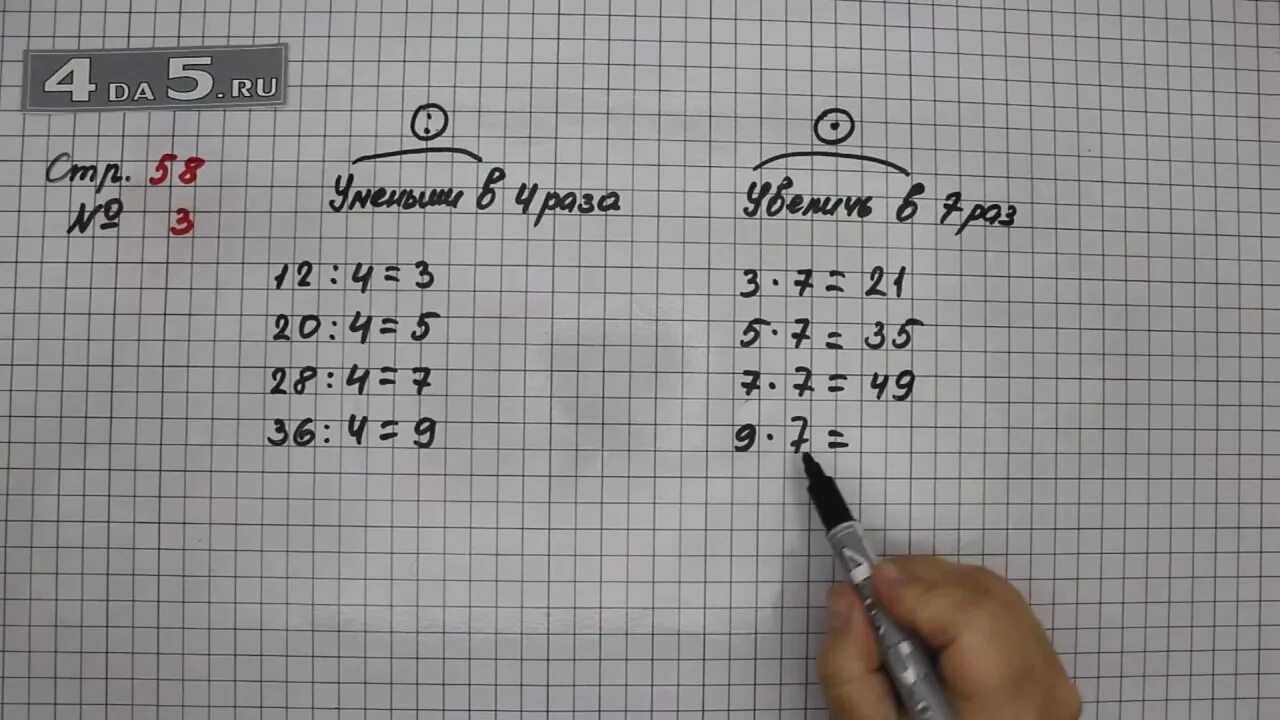 4 DA 5.RU
Стр. 58
№ 3
:
Уменьши в 4 раза
12 : 4 = 3
20 : 4 = 5
28 : 4 = 7
36 : 4 = 9
·
Увеличь в 7 раз
3 · 7 = 21
5 · 7 = 35
7 · 7 = 49
9 · 7 =